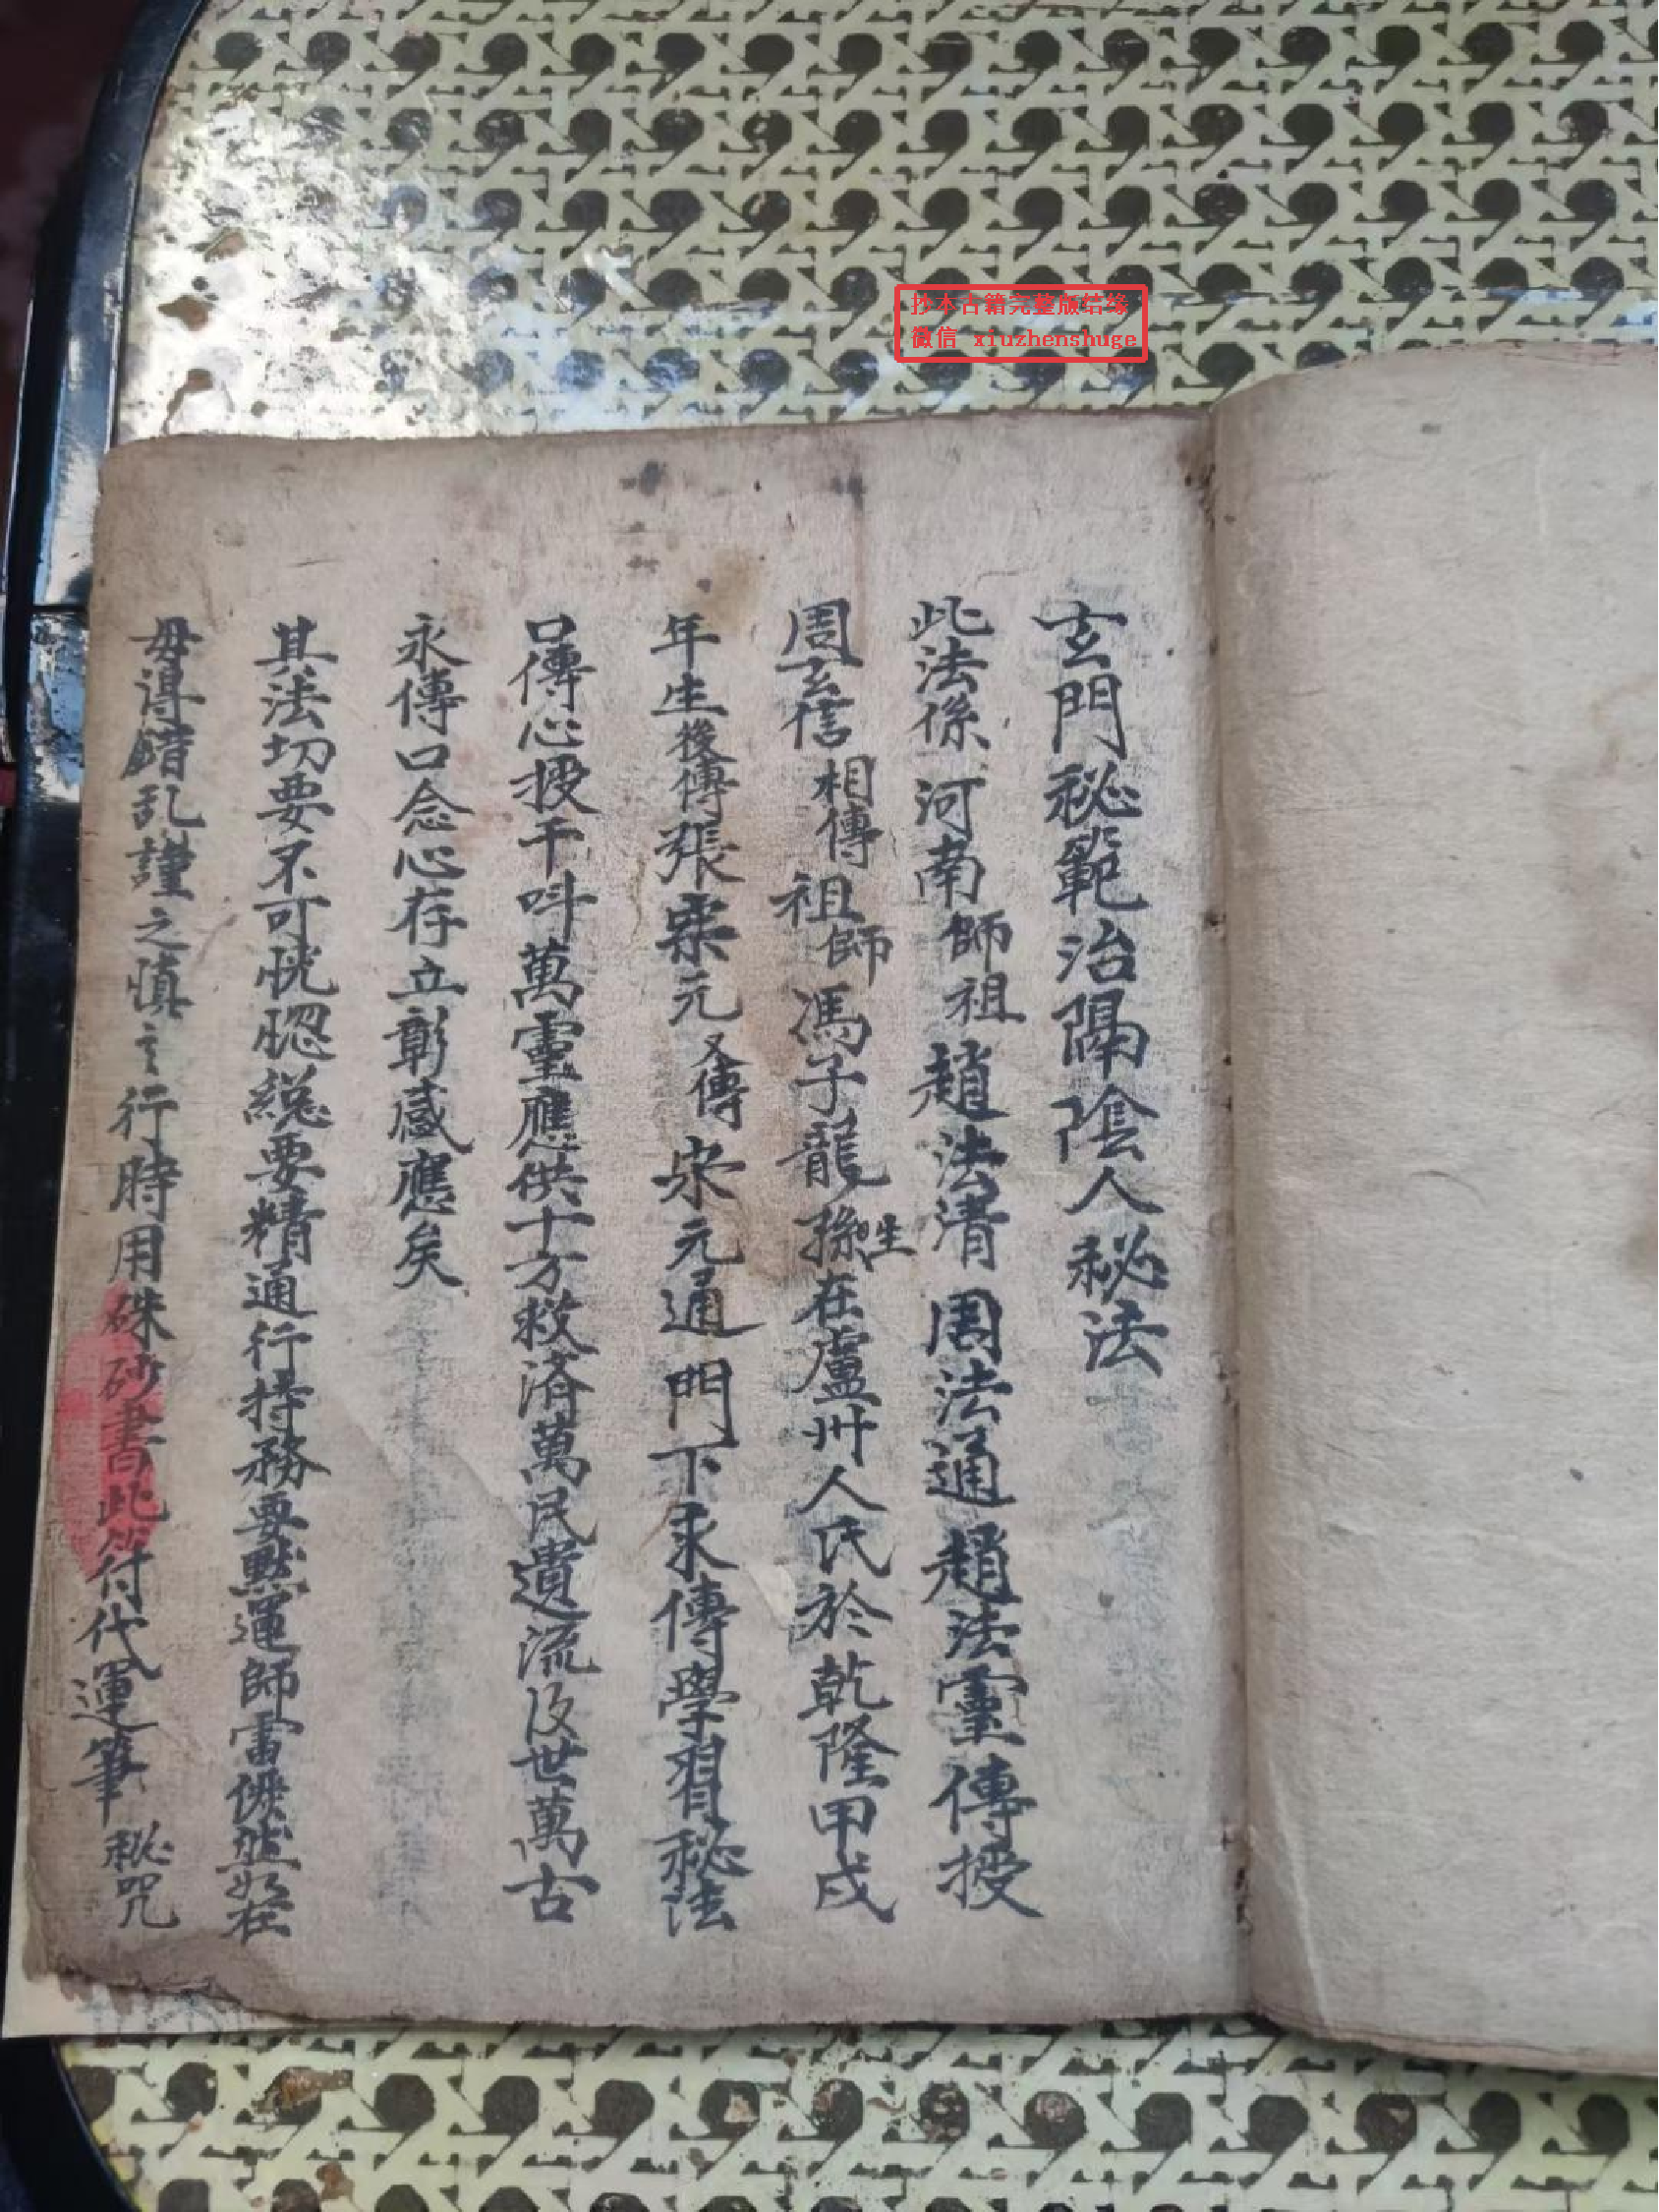 抄本古籍完整版结缘
微信 xiuzhenshuge
玄門秘範治隔陰人秘法
此法係河南師祖趙法清周法通趙法靈傳授
周玄信相傳祖師馮子龍孫生在盧州人氏於乾隆甲戌
年生後傳張宗元又傳宋元通門下永傳學習秘法
口傳心授千呌萬靈應供十方救济萬民遺流後世萬古
永傳口念心存立彰感應矣
其法切要不可恍惚総要精通行持務要默運師雷儼然如在
毋得錯乱謹之慎之行時用硃砂書此符代運筆秘咒